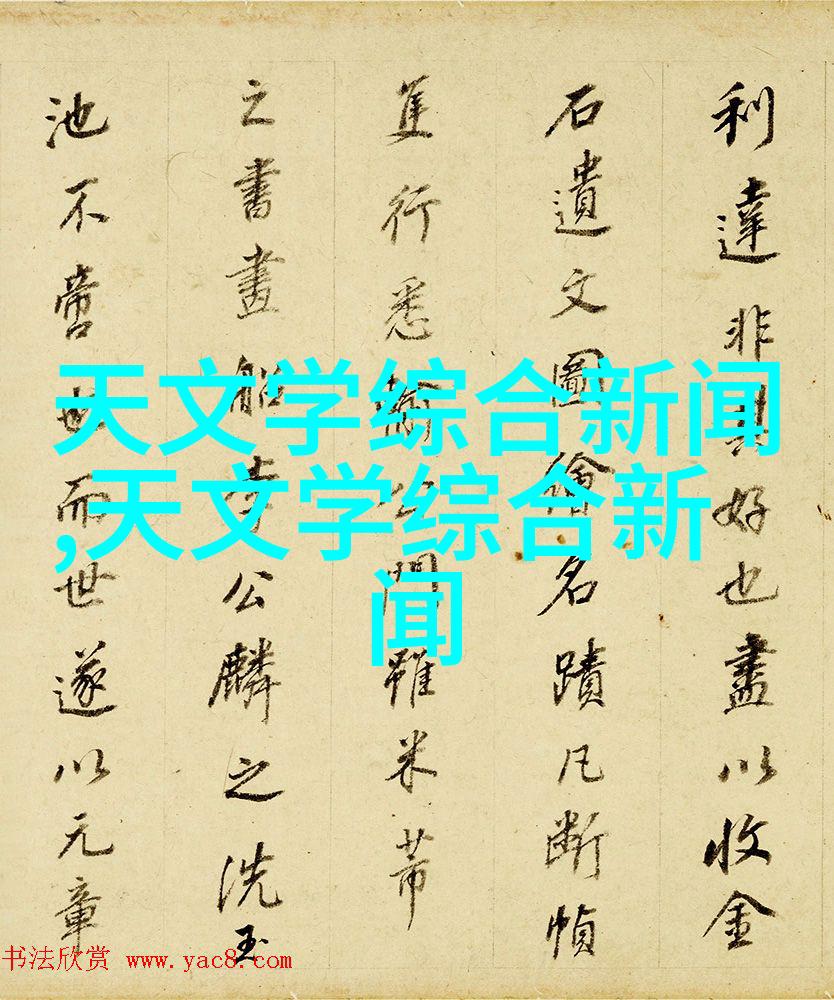 利達非其好也盡以收金
石遺文圖繪名蹟凡斷幀
隻行悉輸公門雖米芾
之書畫船李公麟之洗玉
池不啻也而世遂以元章
天文学综合新闻
,天文学综合新
闻
书法欣赏 www.yac8.com